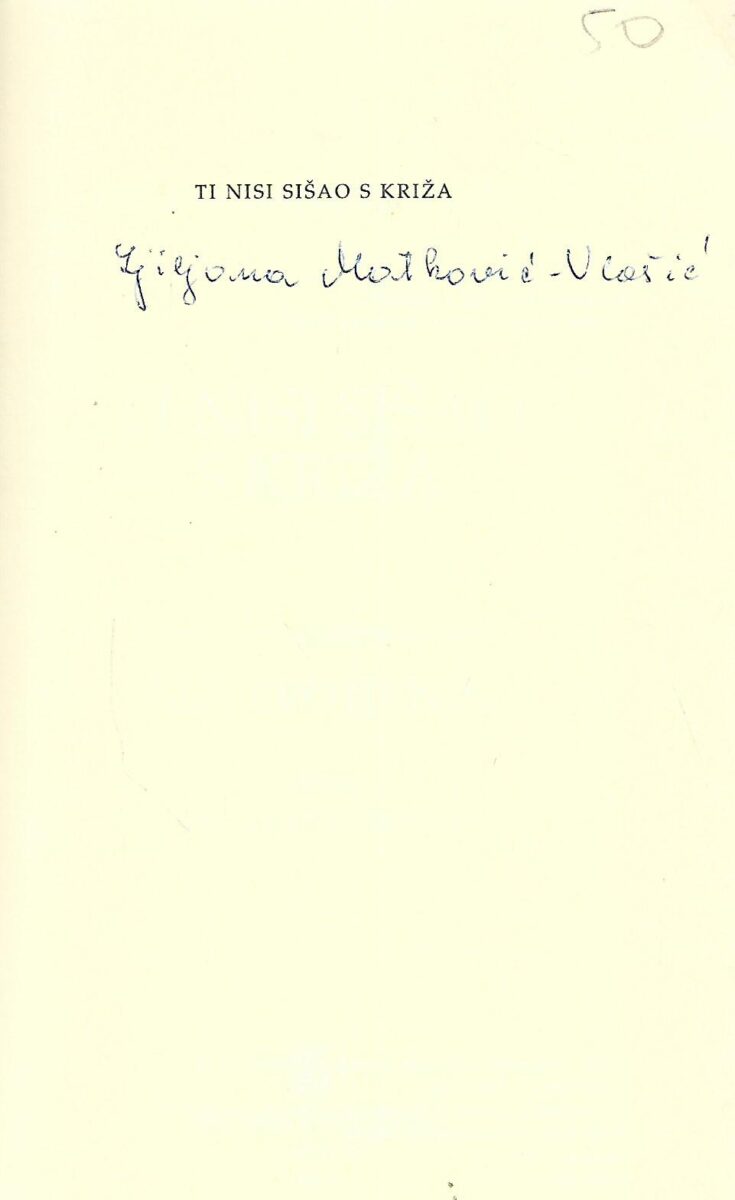 50
TI NISI SIŠAO S KRIŽA
Ljiljana Matković-Vlašić